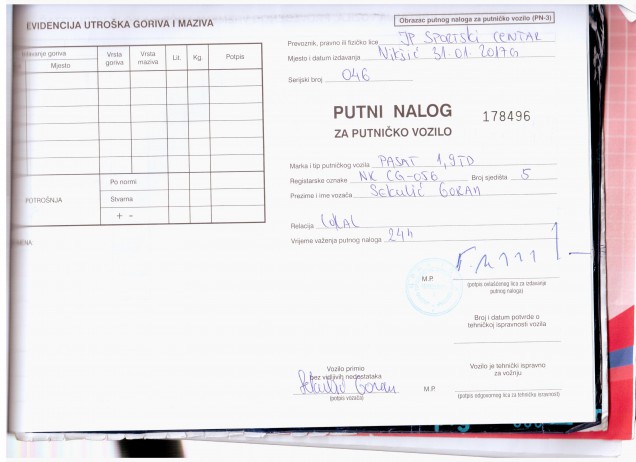 EVIDENCIJA UTROŠKA GORIVA I MAZIVA
Izdavanje goriva
Mjesto
Vrsta goriva
Vrsta maziva
Lit.
Kg.
Potpis
Po normi
POTROŠNJA
Stvarna
+ -
Obrazac putnog naloga za putničko vozilo (PN-3)
Prevoznik, pravno ili fizičko lice JP SPORTSKI CENTAR
Mjesto i datum izdavanja Nikšić 31.01.2017G
Serijski broj 046
PUTNI NALOG 178496
ZA PUTNIČKO VOZILO
Marka i tip putničkog vozila PASAT 1,9TD
Registarske oznake NK CG-056 Broj sjedišta 5
Prezime i ime vozača Sekulić GORAN
Relacija LOKAL
Vrijeme važenja putnog naloga 24h
M.P.
(potpis ovlašćenog lica za izdavanje
putnog naloga)
Broj i datum potvrde o
tehničkoj ispravnosti vozila
Vozilo primio
bez vidljivih nedostataka
Sekulić Goran
(potpis vozača)
Vozilo je tehnički ispravno
za vožnju
M.P.
(potpis odgovornog lica za tehničku ispravnost)